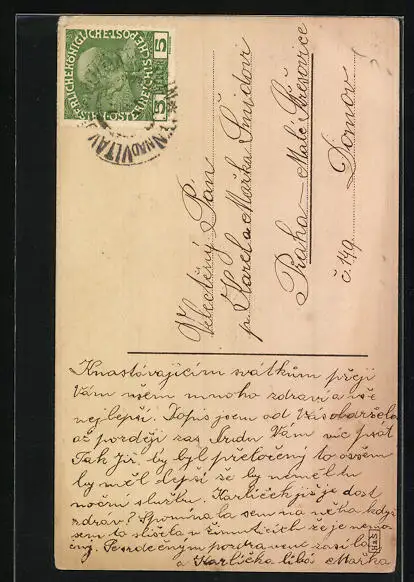 KAISERLICHE KÖNIGLICHE ÖSTERREICHISCHE POST
5 HELLER 5
TÝN NAD VLTAVOU
Velectěný Pán
p. Karel a Mařka Šmidovi
Praha – Malé Střešovice
č. 149. Domov
K nastávajícím svátkům přeji
Vám všem mnoho zdraví a vše
nejlepší. Dopis jsem od Vás obdržela
až později zas budu Vám víc psát
Tak již by byl přeložený to ovšem
by měl lepší že by neměl tu
noční službu. Karlíček již je dost
zdráv? Vzpomínala jsem na něho když
jsem to slyšela v že je nemo
cný. Se srdečným pozdravem zasílá
a Karlíčka líbá Mařka